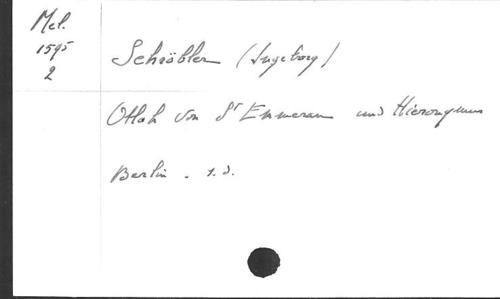 Mel.
1595
2
Schröbler (Ingeborg)
Otloh von St Emmeram und Hieronymus
Berlin. s.d.